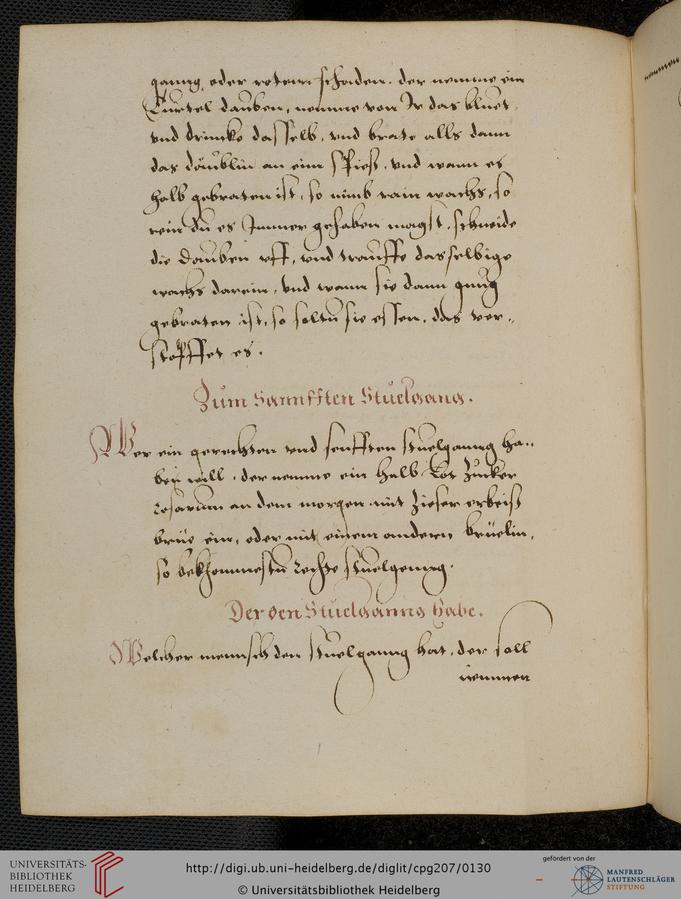 ganng, oder rotem schaden. der nemme ein
Turtel dauben, nemme von Ir das bluet,
vnd drincke dasselb, vnd brate alls dann
das däublin an eim spiess, vnd wann es
halb gebraten ist, so nimb rain wachs, so
rein du es Immer gehaben magst, schneide
die dauben vff, vnd trauffe dasselbige
wachs darein, vnd wann sie dann gnug
gebraten ist, so soltu sie essen, das ver,,
stopffet es.
Zum Sannfften Stuelgang.
Wer ein gerechten vnd senfften stuelganng ha,,
ben will, der nemme ein halb Lot Zucker
rosarum an dem morgen mit Zieser erbeiss
brüe ein, oder mit einem andern brüelin,
so bekhommestu rechte stuelgenng.
Der den Stuelganng habe.
Welcher mennsch den stuelganng hat, der soll
nemmen
UNIVERSITÄTS-
BIBLIOTHEK
HEIDELBERG
http://digi.ub.uni-heidelberg.de/diglit/cpg207/0130
© Universitätsbibliothek Heidelberg
gefördert von der
MANFRED
LAUTENSCHLÄGER
STIFTUNG